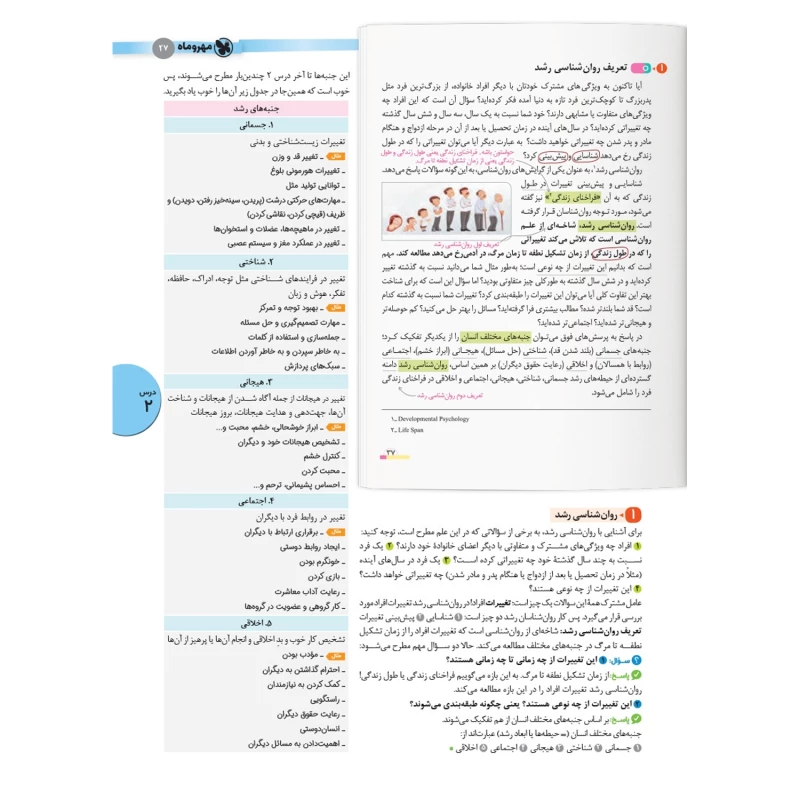 مهروماه
۲۷
۱ تعریف روان‌شناسی رشد
آیا تاکنون به ویژگی‌های مشترک خودتان با دیگر افراد خانواده، از بزرگ‌ترین فرد مثل
پدربزرگ تا کوچک‌ترین فرد تازه به دنیا آمده فکر کرده‌اید؟ سؤال آن است که این افراد چه
ویژگی‌های متفاوت یا مشابهی دارند؟ خود شما نسبت به یک سال، سه سال و شش سال گذشته
چه تغییراتی کرده‌اید؟ در سال‌های آینده در زمان تحصیل یا بعد از آن در مرحله ازدواج و هنگام
مادر و پدر شدن چه تغییراتی خواهید داشت؟ به عبارت دیگر آیا می‌توان تغییراتی را که در طول
زندگی رخ می‌دهد شناسایی و پیش‌بینی کرد؟
حواستون باشه، فراخنای زندگی یعنی طول زندگی و طول
زندگی یعنی از زمان تشکیل نطفه تا مرگ.
روان‌شناسی رشد۱، به عنوان یکی از گرایش‌های روان‌شناسی، به این‌گونه سؤالات پاسخ می‌دهد.
شناسایی و پیش‌بینی تغییرات در طول
زندگی که به آن «فراخنای زندگی۲» نیز گفته
می‌شود، مورد توجه روان‌شناسان قرار گرفته
است. روان‌شناسی رشد، شاخه‌ای از علم
روان‌شناسی است که تلاش می‌کند تغییراتی
تعریف اول روان‌شناسی رشد
را که در طول زندگی، از زمان تشکیل نطفه تا زمان مرگ، در آدمی رخ می‌دهد مطالعه کند. مهم
است که بدانیم این تغییرات از چه نوعی است؛ به‌طور مثال شما می‌دانید نسبت به گذشته تغییر
کرده‌اید و در شش سال گذشته به طور کلی چیز متفاوتی بودید؟ اما سؤال این است که برای شناخت
بهتر این تفاوت کلی آیا می‌توان این تغییرات را طبقه‌بندی کرد؟ تغییرات شما نسبت به گذشته کدام
است؟ قد شما بلندتر شده؟ مطالب بیشتری فرا گرفته‌اید؟ مسائل را بهتر حل می‌کنید؟ کم حوصله‌تر
و هیجانی‌تر شده‌اید؟ اجتماعی‌تر شده‌اید؟
در پاسخ به پرسش‌های فوق می‌توان جنبه‌های مختلف انسان را از یکدیگر تفکیک کرد؛
جنبه‌های جسمانی (بلند شدن قد)، شناختی (حل مسائل)، هیجانی (ابراز خشم)، اجتماعی
(روابط با همسالان) و اخلاقی (رعایت حقوق دیگران) بر همین اساس، روان‌شناسی رشد دامنه
گسترده‌ای از حیطه‌های رشد جسمانی، شناختی، هیجانی، اجتماعی و اخلاقی در فراخنای زندگی
فرد را شامل می‌شود.
تعریف دوم روان‌شناسی رشد
۱ـ Developmental Psychology
۲ـ Life Span
۳۷
۱ روان‌شناسی رشد
برای آشنایی با روان‌شناسی رشد، به برخی از سؤالاتی که در این علم مطرح است، توجه کنید:
۱ افراد چه ویژگی‌های مشترک و متفاوتی با دیگر اعضای خانوادهٔ خود دارند؟ ۲ یک فرد
نسبت به چند سال گذشتهٔ خود چه تغییراتی کرده است؟ ۳ یک فرد در سال‌های آینده
(مثلاً در زمان تحصیل یا بعد از ازدواج یا هنگام پدر و مادر شدن) چه تغییراتی خواهد داشت؟
۴ این تغییرات از چه نوعی هستند؟
عامل مشترک همهٔ این سوالات یک چیز است: تغییرات افراد! در روان‌شناسی رشد تغییرات افراد مورد
بررسی قرار می‌گیرد. پس کار روان‌شناسان رشد دو چیز است: ۱ شناسایی ۲ پیش‌بینی تغییرات
تعریف روان‌شناسی رشد: شاخه‌ای از روان‌شناسی است که تغییرات افراد را از زمان تشکیل
نطفه تا مرگ در جنبه‌های مختلف مطالعه می‌کند. حالا دو سؤال مهم مطرح می‌شود:
سؤال: ۱ این تغییرات از چه زمانی تا چه زمانی هستند؟
پاسخ: از زمان تشکیل نطفه تا مرگ. به این بازه می‌گوییم فراخنای زندگی یا طول زندگی!
روان‌شناسی رشد تغییرات افراد را در این بازه مطالعه می‌کند.
۲ این تغییرات از چه نوعی هستند؟ یعنی چگونه طبقه‌بندی می‌شوند؟
پاسخ: بر اساس جنبه‌های مختلف انسان از هم تفکیک می‌شوند.
جنبه‌های مختلف انسان (= حیطه‌ها یا ابعاد رشد) عبارت‌اند از:
۱ جسمانی ۲ شناختی ۳ هیجانی ۴ اجتماعی ۵ اخلاقی
این جنبه‌ها تا آخر درس ۲ چندین‌بار مطرح می‌شوند، پس
خوب است که همین‌جا در جدول زیر آن‌ها را خوب یاد بگیرید.
جنبه‌های رشد
۱. جسمانی
تغییرات زیست‌شناختی و بدنی
مثال ـ تغییر قد و وزن
ـ تغییرات هورمونی بلوغ
ـ توانایی تولید مثل
ـ مهارت‌های حرکتی درشت (پریدن، سینه‌خیز رفتن، دویدن) و
ظریف (قیچی کردن، نقاشی کردن)
ـ تغییر در ماهیچه‌ها، عضلات و استخوان‌ها
ـ تغییر در عملکرد مغز و سیستم عصبی
۲. شناختی
تغییر در فرایندهای شناختی مثل توجه، ادراک، حافظه،
تفکر، هوش و زبان
مثال ـ بهبود توجه و تمرکز
ـ مهارت تصمیم‌گیری و حل مسئله
ـ جمله‌سازی و استفاده از کلمات
ـ به خاطر سپردن و به خاطر آوردن اطلاعات
ـ سبک‌های پردازش
۳. هیجانی
تغییر در هیجانات از جمله آگاه شدن از هیجانات و شناخت
آن‌ها، جهت‌دهی و هدایت هیجانات، بروز هیجانات
مثال ـ ابراز خوشحالی، خشم، محبت و...
ـ تشخیص هیجانات خود و دیگران
ـ کنترل خشم
ـ محبت کردن
ـ احساس پشیمانی، ترحم و...
۴. اجتماعی
تغییر در روابط فرد با دیگران
مثال ـ برقراری ارتباط با دیگران
ـ ایجاد روابط دوستی
ـ خونگرم بودن
ـ بازی کردن
ـ رعایت آداب معاشرت
ـ کار گروهی و عضویت در گروه‌ها
۵. اخلاقی
تشخیص کار خوب و بد اخلاقی و انجام آن‌ها یا پرهیز از آن‌ها
مثال ـ مؤدب بودن
ـ احترام گذاشتن به دیگران
ـ کمک کردن به نیازمندان
ـ راستگویی
ـ رعایت حقوق دیگران
ـ انسان‌دوستی
ـ اهمیت‌دادن به مسائل دیگران
درس
۲